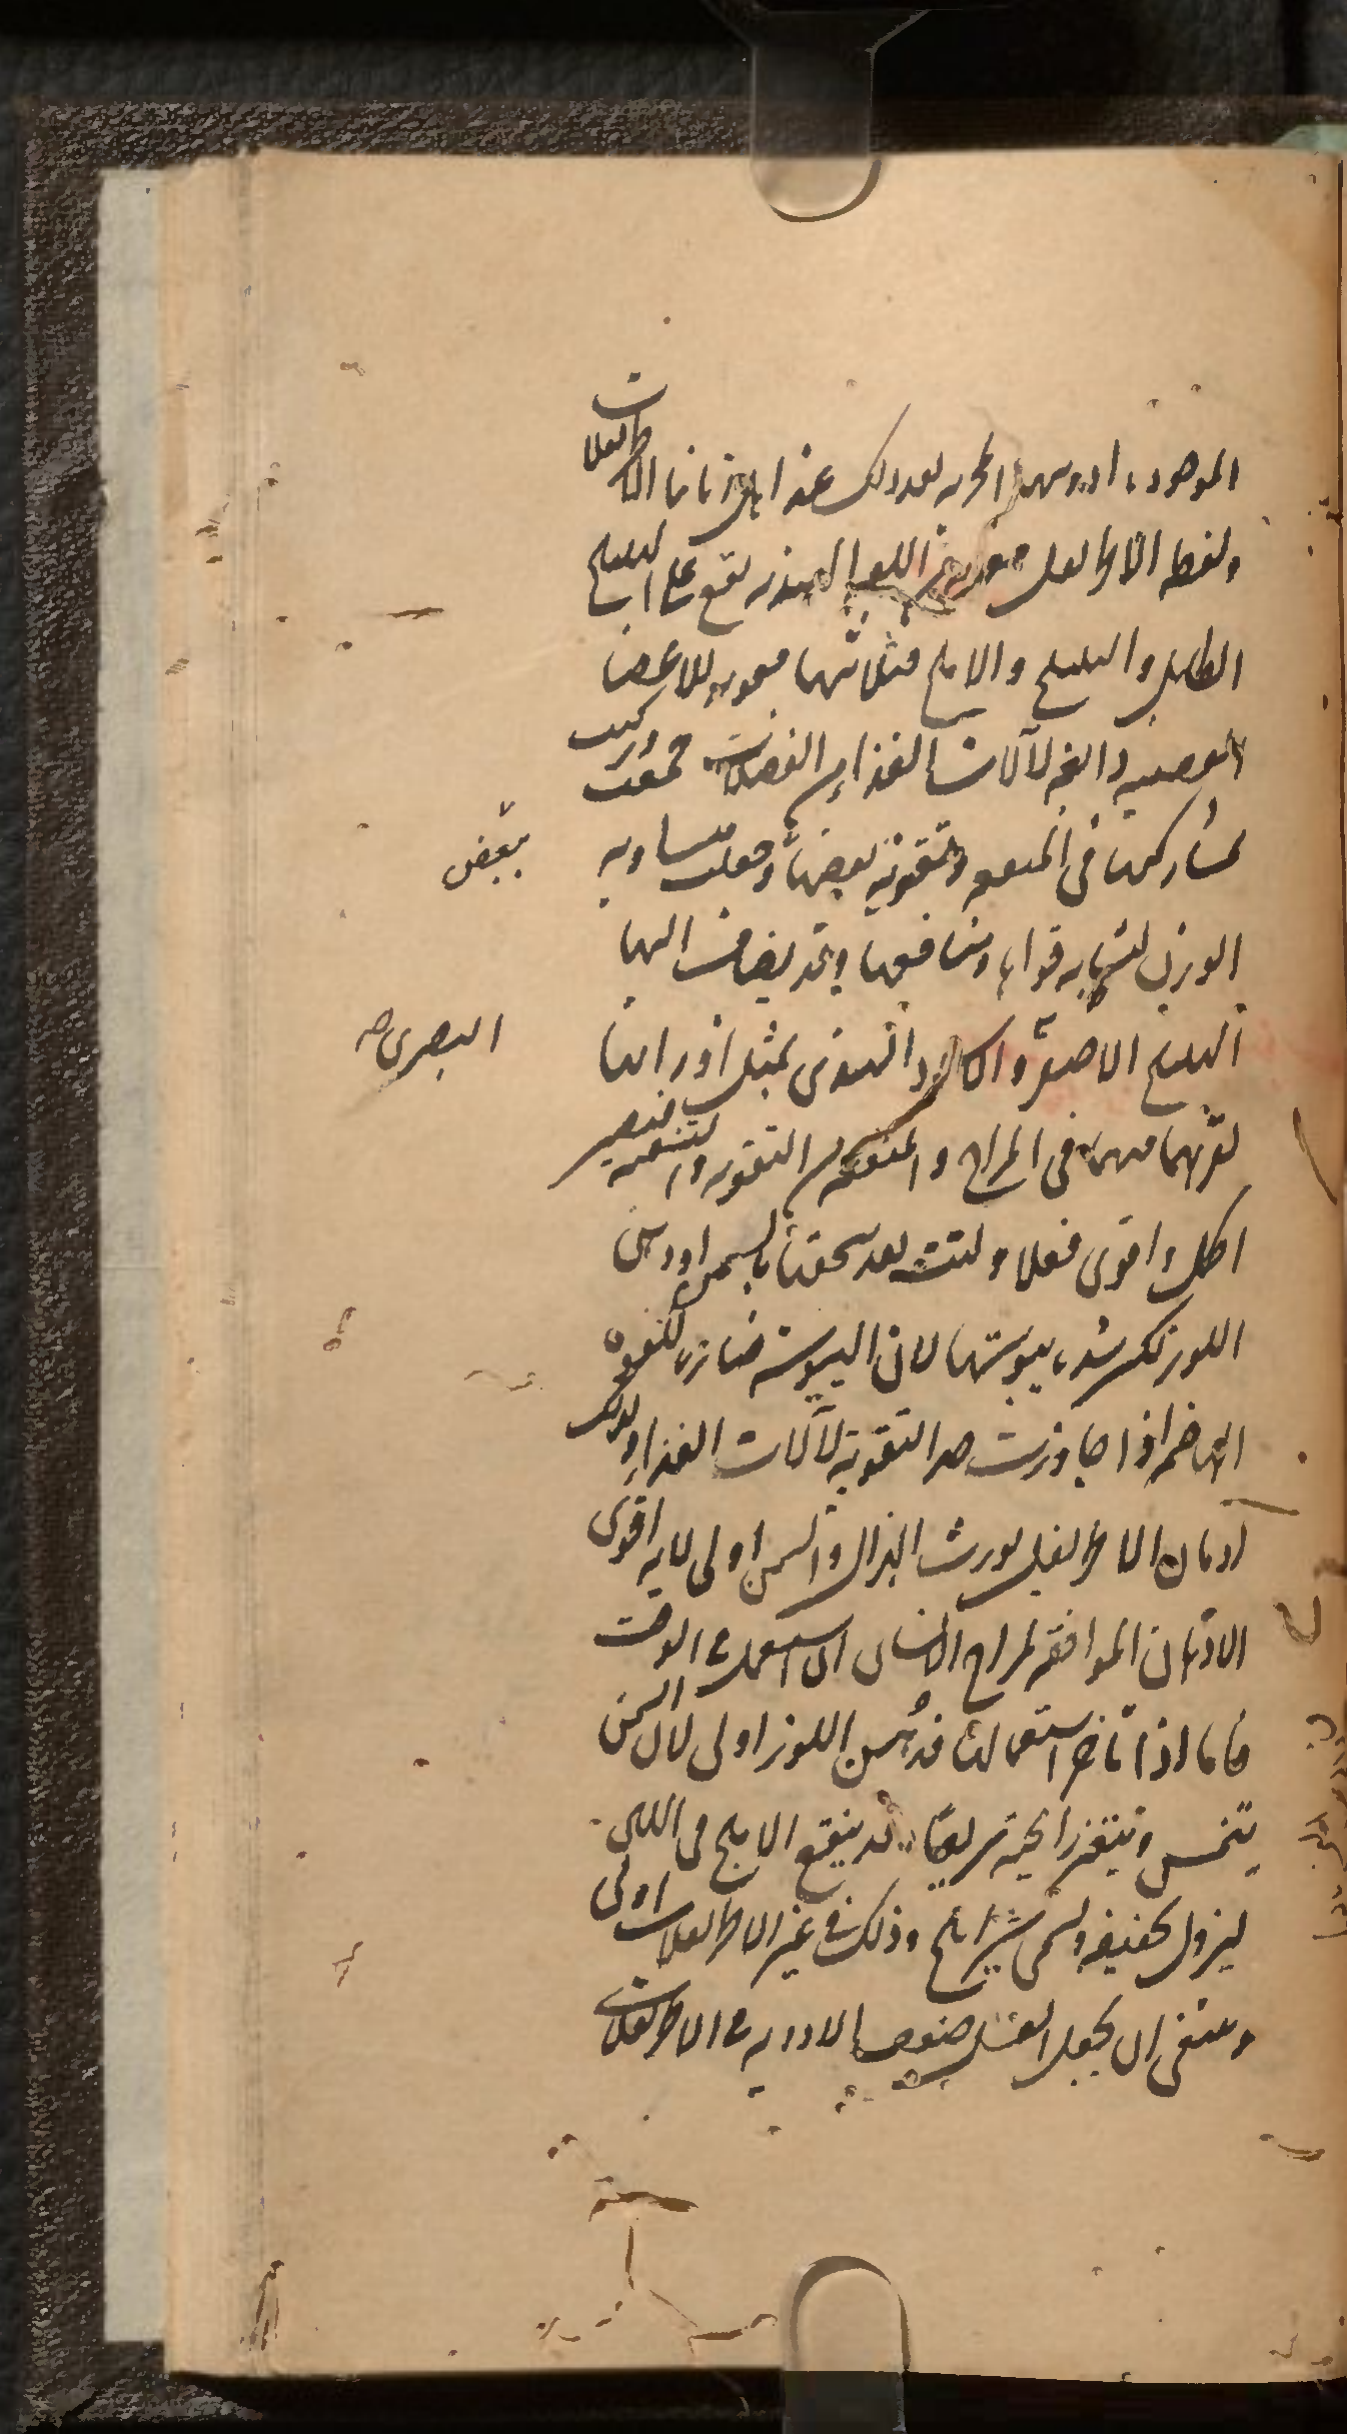 الموجودة ادويتها المجربة بعد ذلك عند اهل زماننا الاطريفلات
ولفظه الاطريفل معربة من اللغة الهندية يقع على الهليلج
الكابلي والبليلج والاملج فثلاثتها مقوية للاعضاء
العصبية دابغة لآلات الغذاء من الفضلات فجمعت وركبت
لمشاركتها في المنفعة وتقوية بعضها وجعلت متساوية
بعض
الوزن لتشابه قواها ومنافعها وقد يضاف اليها
الهليلج الاصفر والاسود الهندي بمثل اوزانها
البصري
لقربهما منها في المزاج والمنفعة من التقوية والتنقية فيصير
اكمل واقوى فعلا وتلت بعد سحقها بالسمن او دهن
اللوز لكسر شدة يبوستها لان اليبوسة ضارة للقوة
الهاضمة اذا جاوزت حد التقوية لآلات الغذاء ولذلك
ادمان الاطريفل يورث الهزال والسمن اولى لانه اقوى
الادهان الموافقة لمزاج الانسان ان استعملت في الوقت
فاما اذا تأخر استعمالها فدهن اللوز اولى لان السمن
يتخمس ويتغير رائحته سريعا وقد ينقع الاملج في اللبن
ليزول تجفيفه ويسمى شير املج وذلك في غير الاطريفلات اولى
وينبغي ان يجعل العسل ضعف الادوية في الاطريفلات